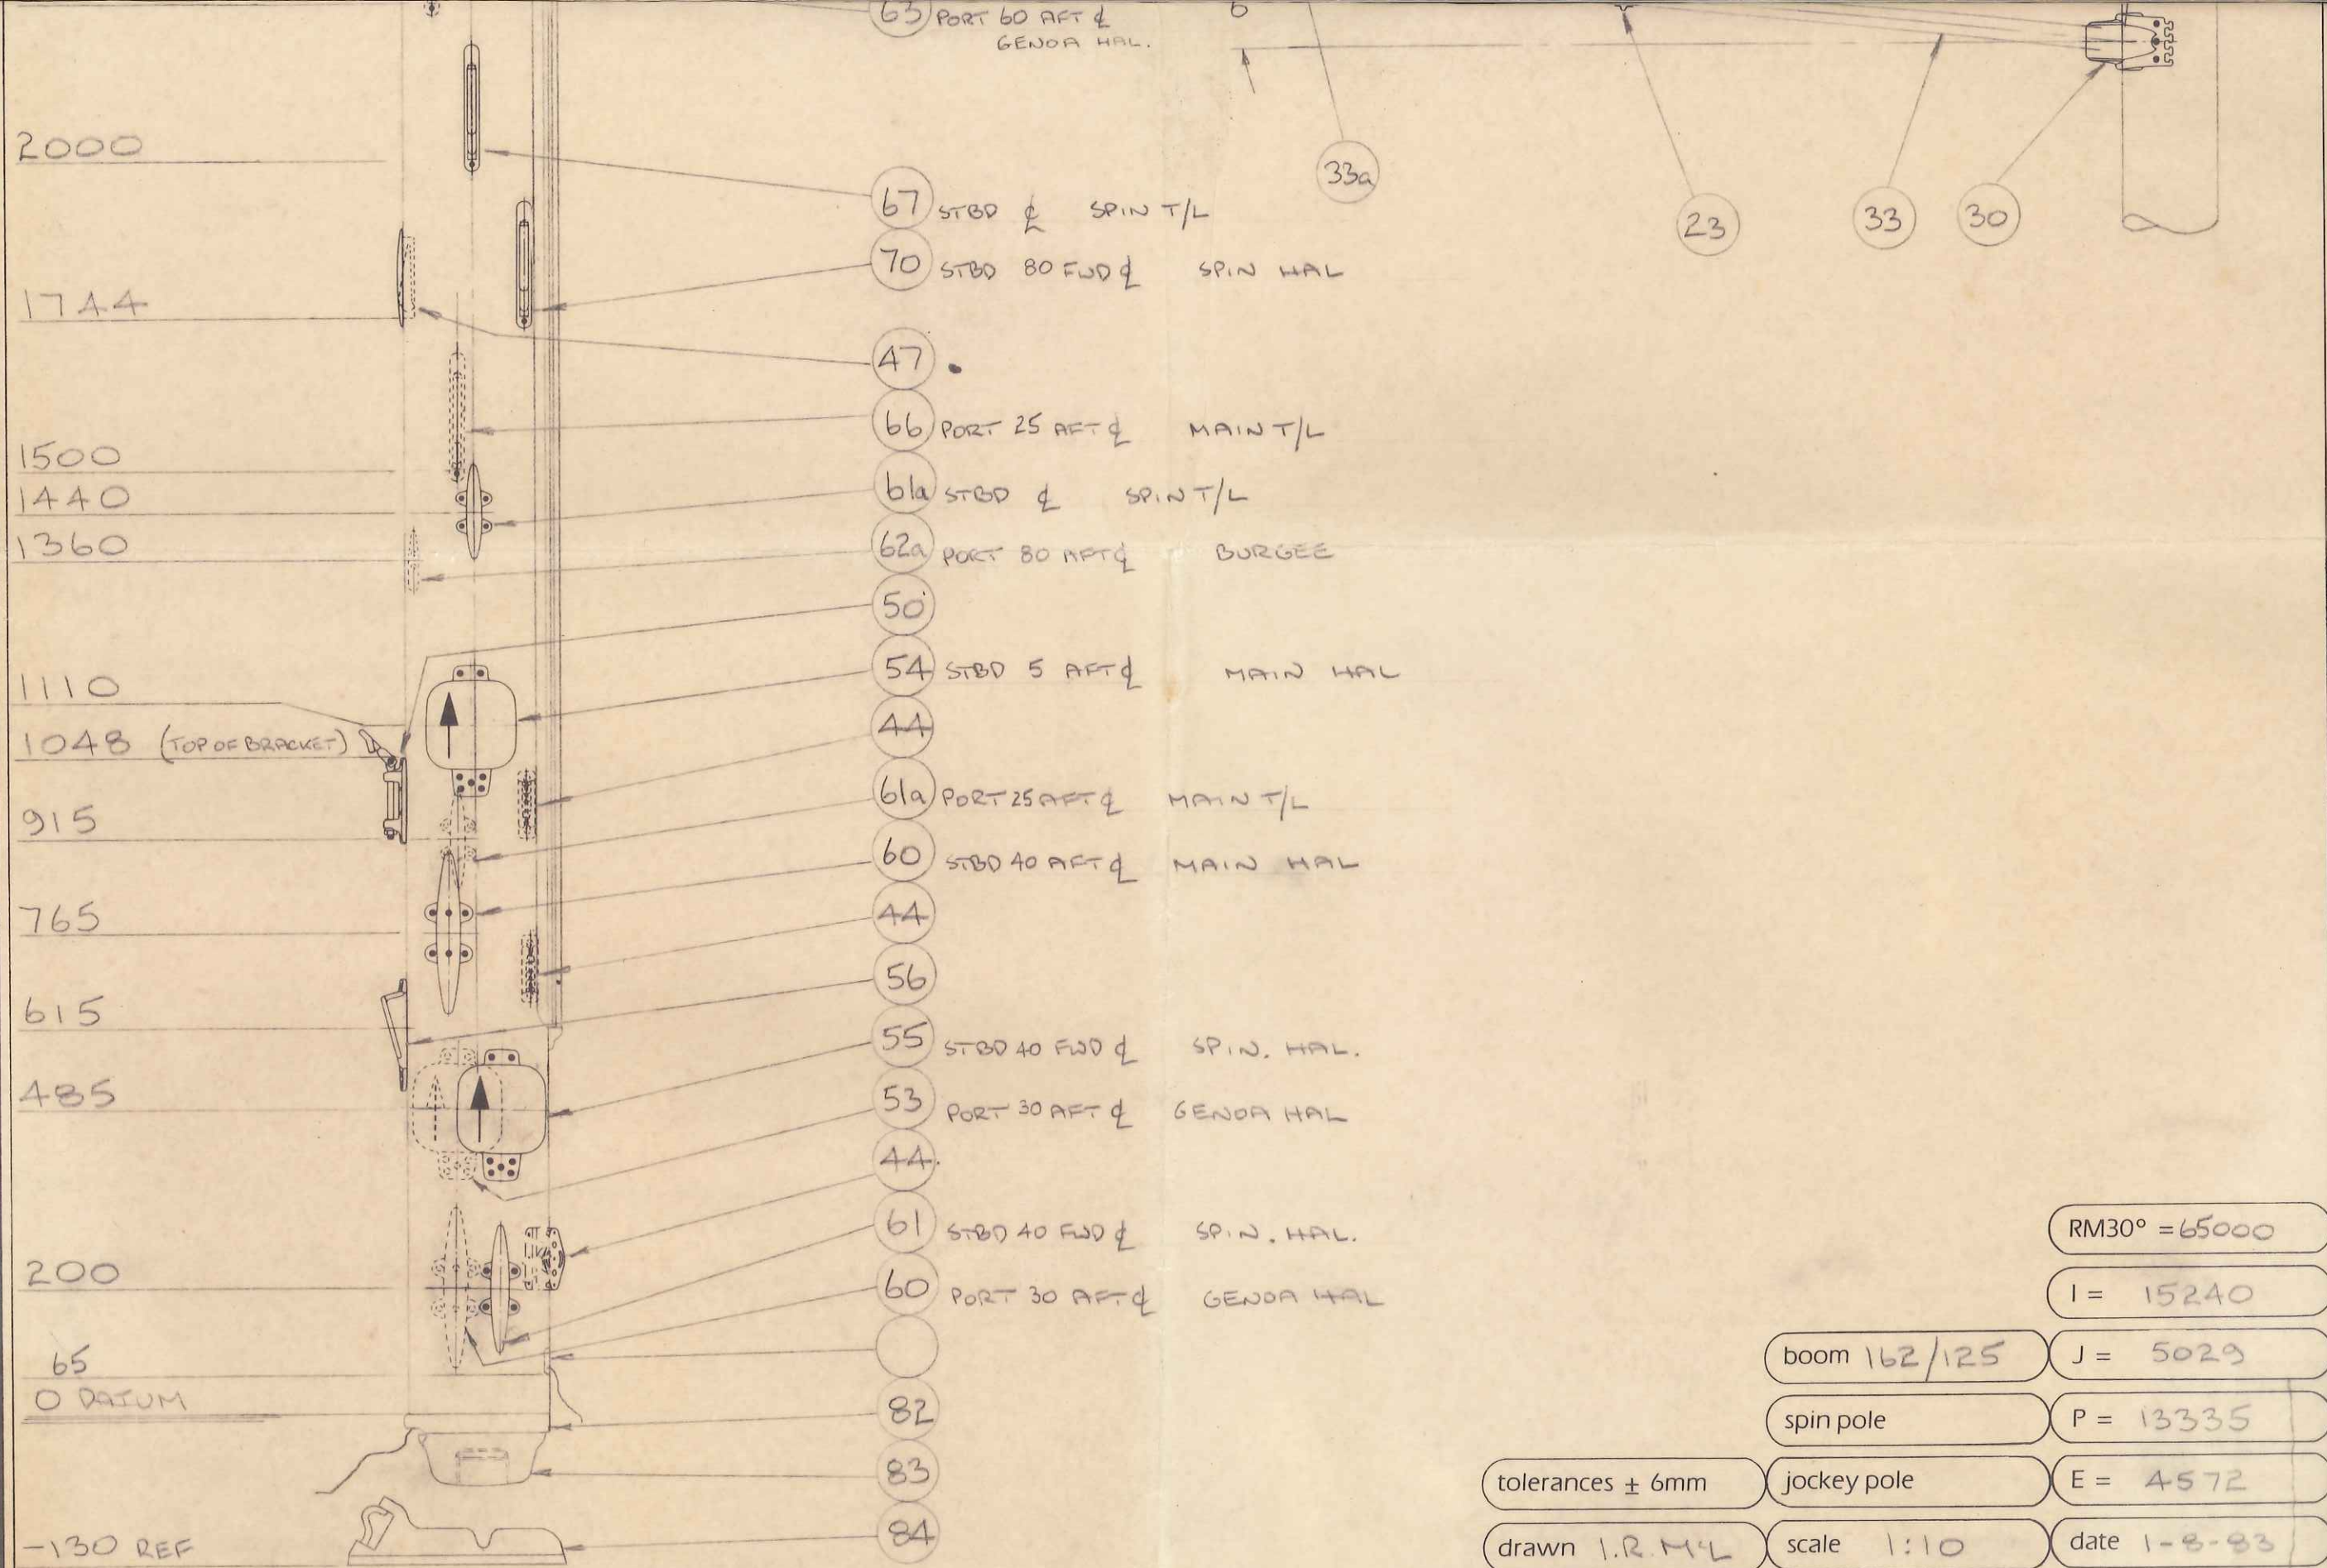 63 PORT 60 AFT ℄
GENOA HAL.
33a
23
33
30
2000
1744
1500
1440
1360
1110
1048 (TOP OF BRACKET)
915
765
615
485
200
65
0 DATUM
-130 REF
67 STBD ℄ SPIN T/L
70 STBD 80 FWD ℄ SPIN HAL
47
66 PORT 25 AFT ℄ MAIN T/L
61a STBD ℄ SPIN T/L
62a PORT 80 AFT ℄ BURGEE
50
54 STBD 5 AFT ℄ MAIN HAL
44
61a PORT 25 AFT ℄ MAIN T/L
60 STBD 40 AFT ℄ MAIN HAL
44
56
55 STBD 40 FWD ℄ SPIN. HAL.
53 PORT 30 AFT ℄ GENOA HAL
44.
61 STBD 40 FWD ℄ SPIN. HAL.
60 PORT 30 AFT ℄ GENOA HAL
82
83
84
RM30° = 65000
I = 15240
boom 162/125
J = 5029
spin pole
P = 13335
tolerances ± 6mm
jockey pole
E = 4572
drawn I.R. McL
scale 1:10
date 1-8-83